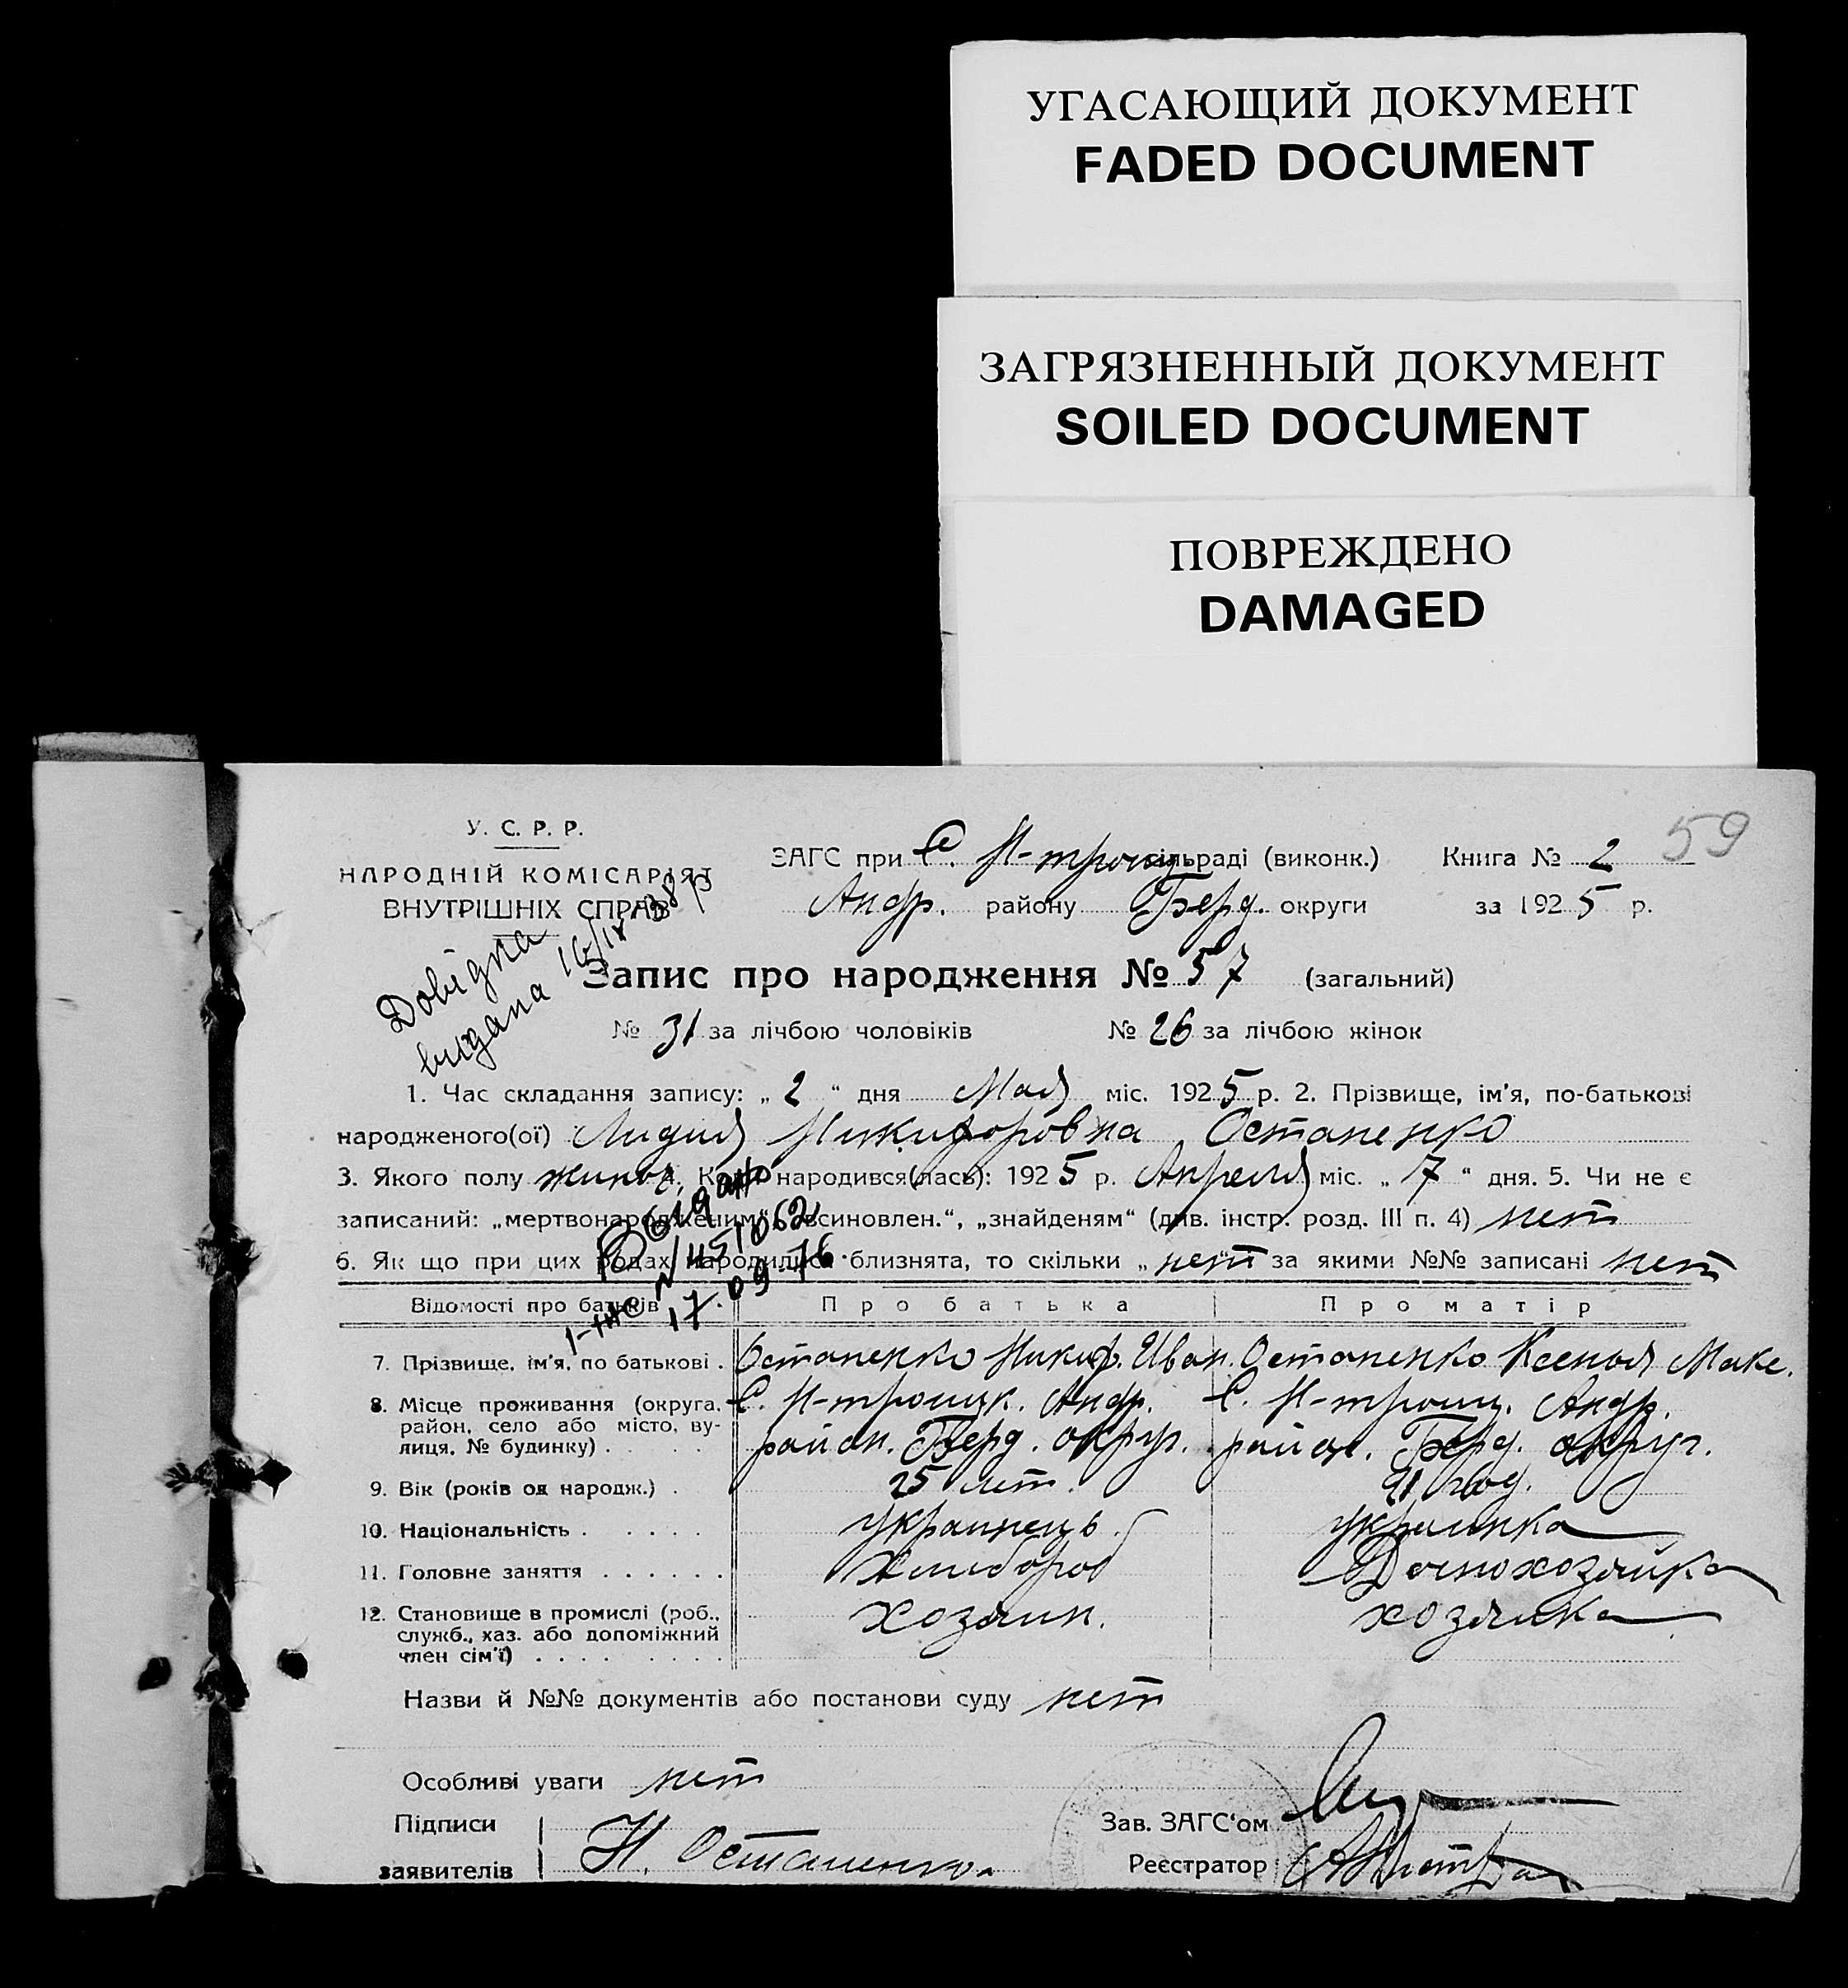 УГАСАЮЩИЙ ДОКУМЕНТ
FADED DOCUMENT
ЗАГРЯЗНЕННЫЙ ДОКУМЕНТ
SOILED DOCUMENT
ПОВРЕЖДЕНО
DAMAGED
59
У. С. Р. Р.
НАРОДНІЙ КОМІСАРІЯТ
ВНУТРІШНІХ СПРАВ
ЗАГС при С. Н-троицк сільраді (виконк.) Книга № 2
Андр. району Берд. округи за 1925 р.
Довідка
видана 16/IX 38 р
Запис про народження № 57 (загальний)
№ 31 за лічбою чоловіків № 26 за лічбою жінок
1. Час складання запису: „ 2 “ дня Мая міс. 1925 р. 2. Прізвище, ім'я, по-батькові
народженого(ої) Лидия Никифоровна Остапенко
3. Якого полу жиноч. 4. Коли народився(лась): 1925 р. Апреля міс. „ 7 “ дня. 5. Чи не є
записаний: „мертвонародженим“, „всиновлен.“, „знайденям“ (див. інстр. розд. III п. 4) нет
6. Як що при цих родах народились близнята, то скільки „ нет “ за якими №№ записані нет
Видано
1-НЮ № 451062
17.09.76.
Відомості про батьків Про батька Про матір
7. Прізвище, ім'я, по батькові . Остапенко Никиф. Иван. Остапенко Ксенья Макс.
8. Місце проживання (округа, С. Н-троицк. Андр. С. Н-троиц. Андр.
район, село або місто, ву- район. Берд. округ. район. Берд. округ.
лиця, № будинку) . . . .
9. Вік (років од народж.) . 25 лет. 21 год.
10. Національність . . . . . украинець. украинка
11. Головне заняття . . . . . . Хлибороб Домохозяйка
12. Становище в промислі (роб., хозяин. хозяика
служб., хаз. або допоміжний
член сім'ї) . . . . . . . .
Назви й №№ документів або постанови суду нет
Особливі уваги нет
Підписи
заявителів Н. Остапенко
Зав. ЗАГС'ом
Реєстратор